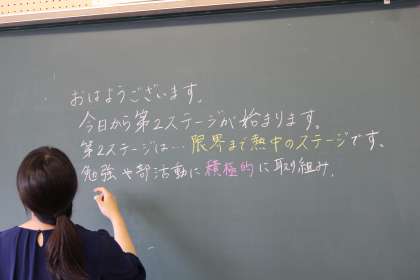 おはようございます。
今日から第2ステージが始まります。
第2ステージは…限界まで熱中のステージです。
勉強や部活動に積極的に取り組み、